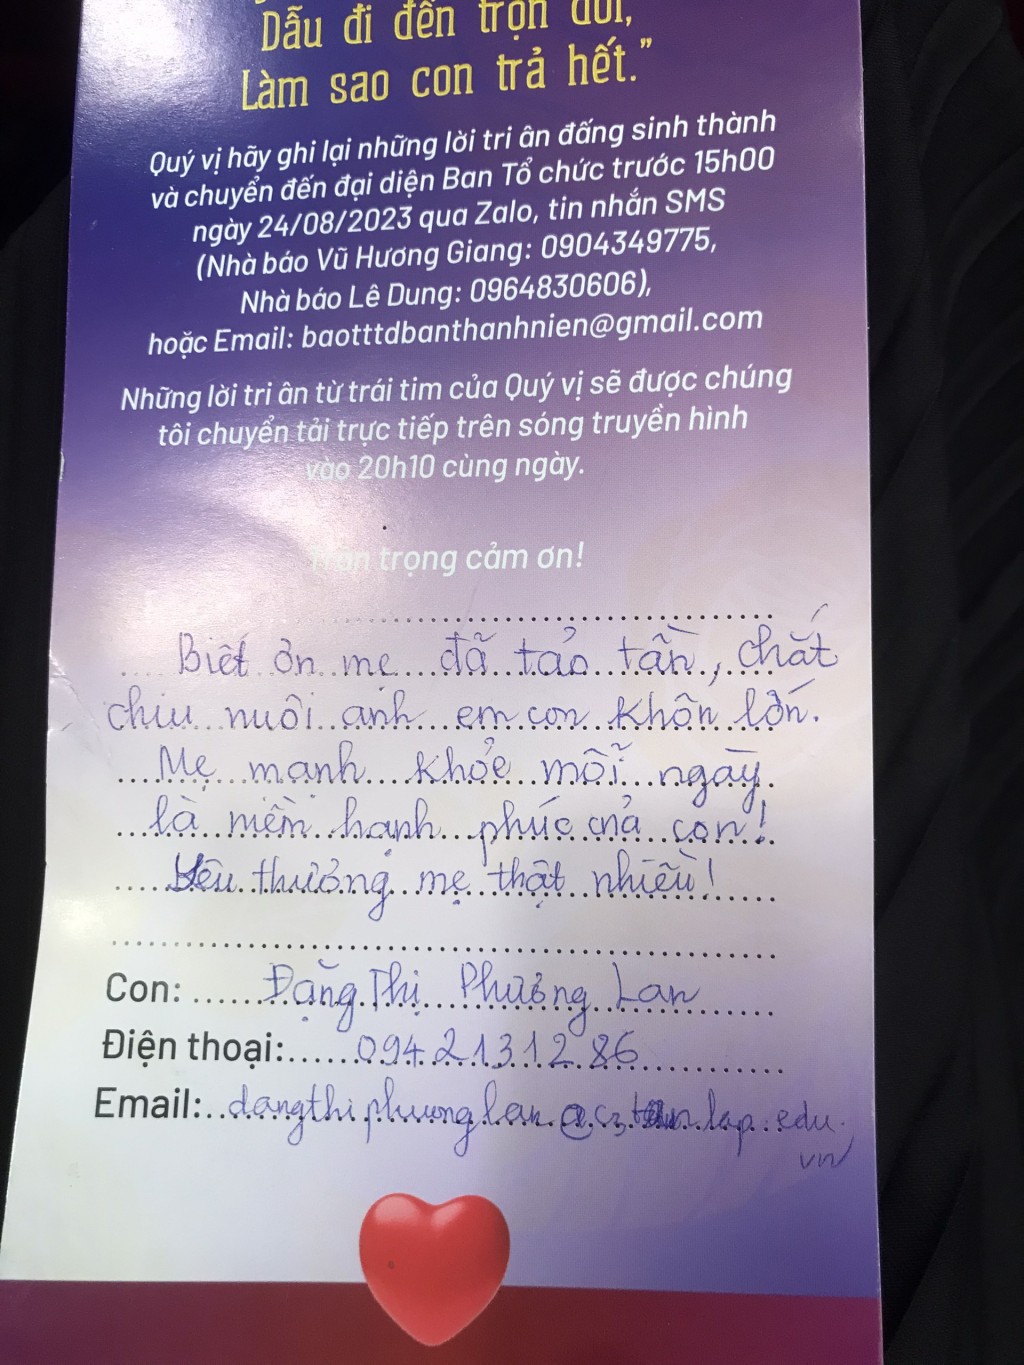 Dẫu đi đến trọn đời,
Làm sao con trả hết."
Quý vị hãy ghi lại những lời tri ân đấng sinh thành
và chuyển đến đại diện Ban Tổ chức trước 15h00
ngày 24/08/2023 qua Zalo, tin nhắn SMS
(Nhà báo Vũ Hương Giang: 0904349775,
Nhà báo Lê Dung: 0964830606),
hoặc Email: baotttdbanthanhnien@gmail.com
Những lời tri ân từ trái tim của Quý vị sẽ được chúng
tôi chuyển tải trực tiếp trên sóng truyền hình
vào 20h10 cùng ngày.
Trân trọng cảm ơn!
Biết ơn mẹ đã tảo tần, chắt
chiu nuôi anh em con khôn lớn.
Mẹ mạnh khỏe mỗi ngày
là niềm hạnh phúc của con!
Yêu thương mẹ thật nhiều!
Con: Đặng Thị Phương Lan
Điện thoại: 0942131286
Email: dangthiphuonglan@c3tanlap.edu.
vn